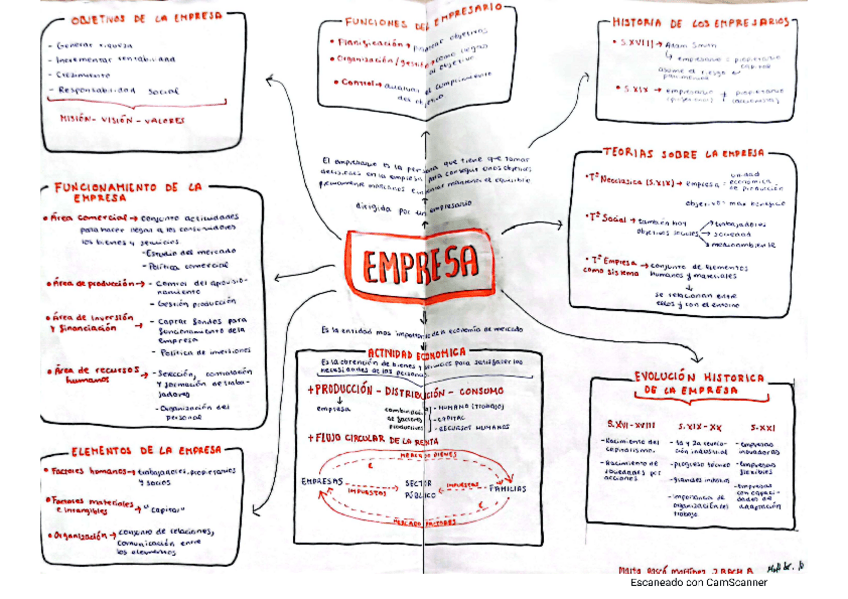 OBJETIVOS DE LA EMPRESA
- Generar riqueza
- Incrementar rentabilidad
- Crecimiento
- Responsabilidad social
MISIÓN - VISIÓN - VALORES
FUNCIONES DEL EMPRESARIO
• Planificación → objetivos
• Organización/gestión → como llegar
al objetivo
• Control → analizar el cumplimiento
del objetivo
HISTORIA DE LOS EMPRESARIOS
• S.XVIII → Adam Smith
↳ empresario = propietario
capital
asume el riesgo
patrimonial
• S.XIX → empresario + propietario
El empresario es la persona que tiene que tomar
decisiones en la empresa para conseguir unos objetivos
dirigida por un empresario
EMPRESA
Es la entidad mas importante de la economía de mercado
FUNCIONAMIENTO DE LA
EMPRESA
• Área comercial → conjunto actividades
para hacer llegar a los consumidores
los bienes y servicios
- Estudio del mercado
- Política comercial
• Área de producción → - Control del aprovisio-
namiento
- Gestión producción
• Área de inversión
y financiación → - Captar fondos para
funcionamiento de la
empresa
- Política de inversiones
• Área de recursos
humanos → - Selección, contratación
y formación de traba-
jadores
- Organización del
personal
TEORIAS SOBRE LA EMPRESA
• Tª Neoclasica (S.XIX) → empresa = unidad
económica
de producción
objetivo = max beneficio
• Tª Social → también hay
objetivos sociales
trabajadores
sociedad
medioambiente
• Tª Empresa
como sistema → conjunto de elementos
humanos y materiales
↓
se relacionan entre
ellos y con el entorno
ACTIVIDAD ECONOMICA
Es la obtención de bienes y servicios para satisfacer las
necesidades de las personas
+ PRODUCCIÓN - DISTRIBUCIÓN - CONSUMO
↓
empresa
combinación
de factores
productivos
- HUMANO (TRABAJO)
- CAPITAL
- RECURSOS HUMANOS
+ FLUJO CIRCULAR DE LA RENTA
MERCADO BIENES
€
EMPRESAS
IMPUESTOS
SECTOR
PÚBLICO
IMPUESTOS
FAMILIAS
€
MERCADO FACTORES
EVOLUCIÓN HISTORICA
DE LA EMPRESA
S.XVI-XVIII
- Nacimiento del
capitalismo.
- Nacimiento de
sociedades por
acciones
S.XIX-XX
- 1a y 2a revolu-
ción industrial
- progreso técnico
- grandes industrias
- importancia de
organización del
trabajo
S-XXI
- empresas
innovadoras
- Empresas
flexibles
- Empresas
con capaci-
dades de
adaptación
ELEMENTOS DE LA EMPRESA
• Factores humanos → trabajadores, propietarios
y socios
• Factores materiales
e intangibles → "capital"
• Organización → conjunto de relaciones,
comunicación entre
los elementos
Marta Martínez 2 BACH A
Escaneado con CamScanner